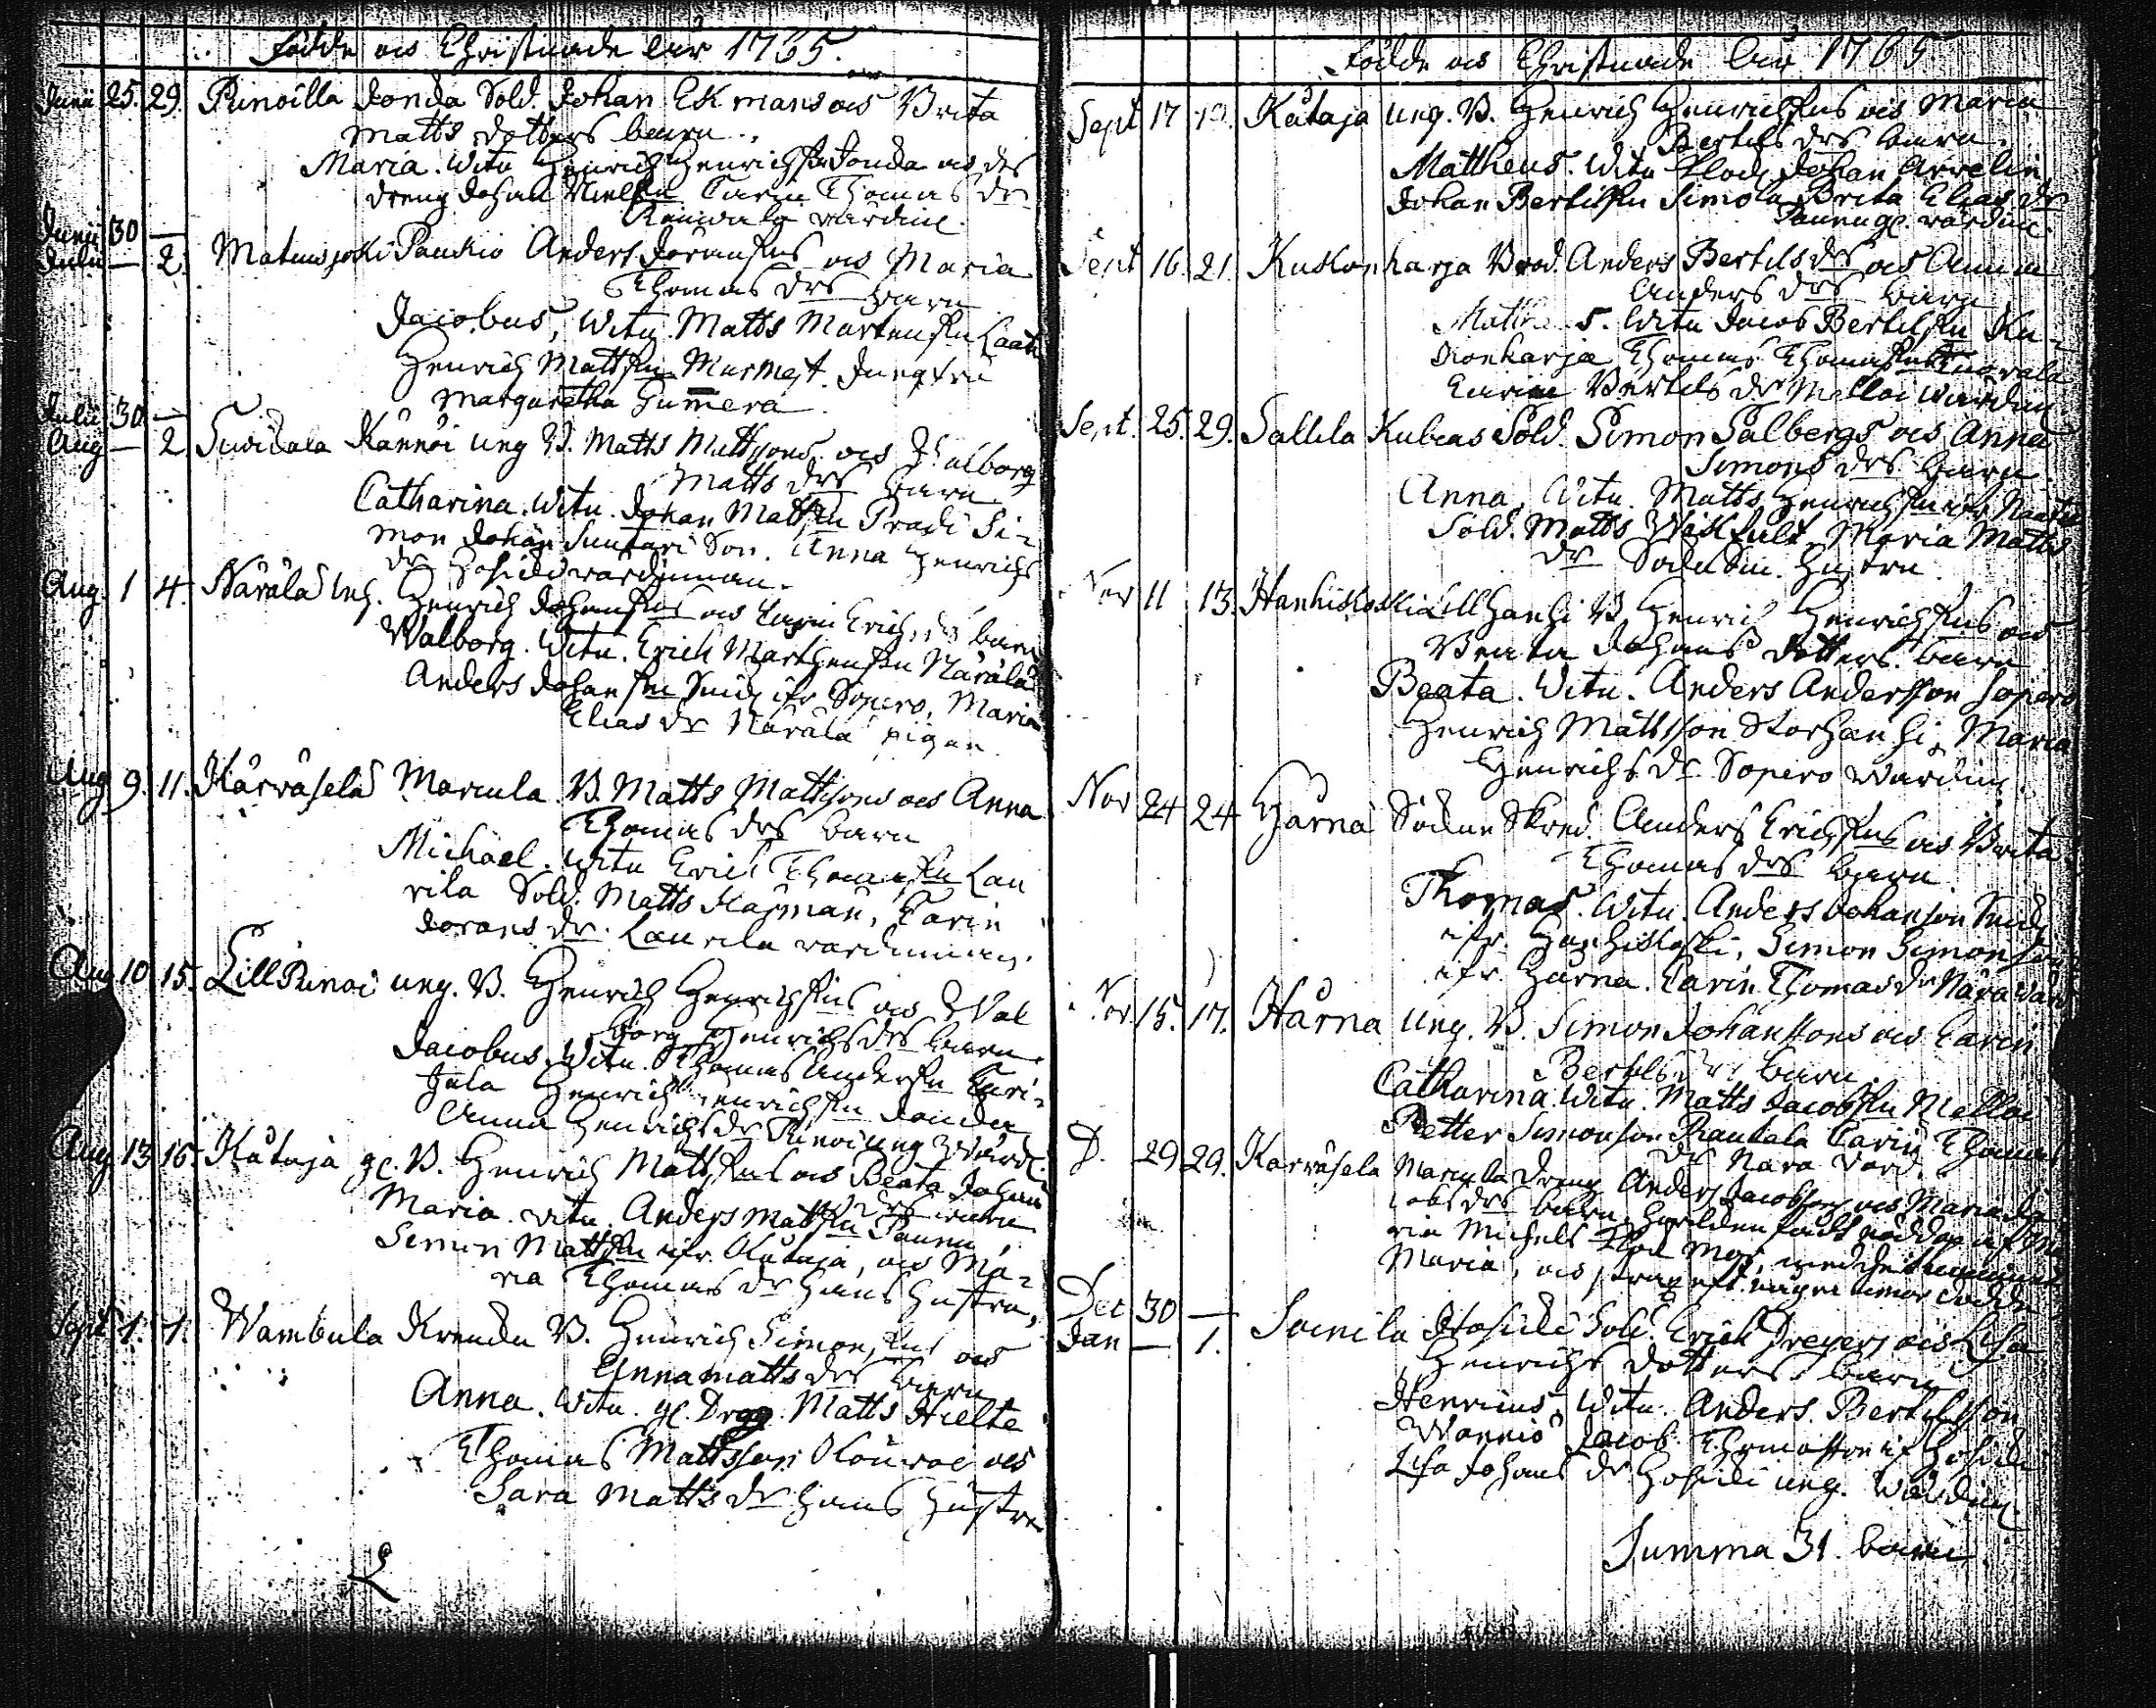 Födde och Christnade åår 1735.
Junii 25. 29. Punoilla Jonda Sold. Johan Ekmans och Brita
Matts dotters barn.
Maria. Witn Henrich Henrichsn Jonda och des
dreng Johan Nielsn Carin Thomas dr
wärdine.
Junii 30 —
Julii — 2. Matnusjoki Pauckio Anders Joransns och Maria
Thomas drs barn
Jacobus, Witn. Matts Martensn
Henrich Mattsn Murmest. Jungfru
Margaretha Gummera.
Julii 30. —
Aug — 2 Suickala Kännöi ung B. Matts Mattssons och Walborg
Matts drs barn.
Catharina. Witn. Johan Mattsn Pradi Si-
mon Johan Suntari Son. Anna Henrichs
dr wärdinnan.
Aug. 1 4. Närälä Inh. Henrich Johansns och Carin Erichs drs barn
Walborg. Witn. Erich Marthensn Närälä
Anders Johansn Smid ifr. Sopero, Maria
Elias dr Närälä pigan.
Aug 9. 11. Karwäselä Marcula B. Matts Mattssons och Anna
Thomas drs barn
Michael. Witn Erich Thomasn Lau
rila Sold. Matts Kajman, Carin
Jorans dr. Laurila wärdinnan.
Aug 10 15. Lill Punoi ung. B. Henrich Henrichsns och Wal
borg Henrichs drs barn.
Jacobus. Witn. Thomas Andersn Cari-
Henrich Henrichsn Jonda
Anna Henrichs dr Punoi ung Wärd.
Aug 13 16. Kataja gl. B. Henrich Mattsns och Beata Johans
drs barn
Maria. Witn. Anders Mattsn Pauni,
Simon Mattsn ifr. Kataja, och Ma-
ria Thomas dr hans hustru,
Sept 1. 1. Wambula Krenda B. Henrich Simonsns och
Anna Matts drs barn
Anna. Witn. gl. Drgg. Matts Hielte
Thomas Mattsson och
Sara Matts dr hans hustru
Födde och Christnade åår 1735
Sept 17 19. Kataja ung. B. Henrich Henrichsns och Maria
Bertils drs barn.
Mattheus. Witn Klock. Johan Arvelin
Johan Bertilsn Simola Brita Elias dr
Pauni gl. wärdin.
Sept 16. 21. Kuskonharja Anders Bertils och Anna
Anders drs barn
Witn Jacob Bertilsn Ku-
skonharja Thomas Thomasn
Carin Bertils dr Melloi wärdin.
Sept. 25. 29. Sallila Kubias Sold. Simon Salbergs och Anna
Simons drs barn
Anna, Witn. Matts Henrichsn ifr.
Sold. Matts Maria Matts
dr Hustru.
Nov 11 13. Hanhikoski Lillhanhi B Henrich Henrichsns och
Beata Johans dotters barn
Beata. Witn. Anders Andersson Sopero
Henrich Mattsson Storhanhi, Maria
Henrichs dr Sopero wärdin.
Nov 24 24 Harna Sockne Skred. Anders Erichsns och Brita
Thomas drs barn.
Thomas. Witn. Anders Johanson Smid
ifr. Hanhikoski, Simon Simonson
ifr Harna. Carin Thomas dr Nära Wärd
Nov. 15. 17. Härna ung. B. Simon Johanssons och Carin
Bertils drs barn.
Catharina. Witn. Matts Jacobsn Melloi
Petter Simonson Carin Thomas
dr Nära Värd.
D. 29 29. Karwäsela Marcula Dreng Anders Jacobssons och Maria Ja
cobs drs barn.
ria Michels
Maria, och
Dec 30 —
Jan — 1. Soinila Hosicki Sold. Erich Dreyers och Lisa
Henrichs dotters barn
Henricus, Witn. Anders Bertilsson
Wannio Jacob Thomasson if
Lisa Johans dr ung. Wärdin.
Summa 31. barn